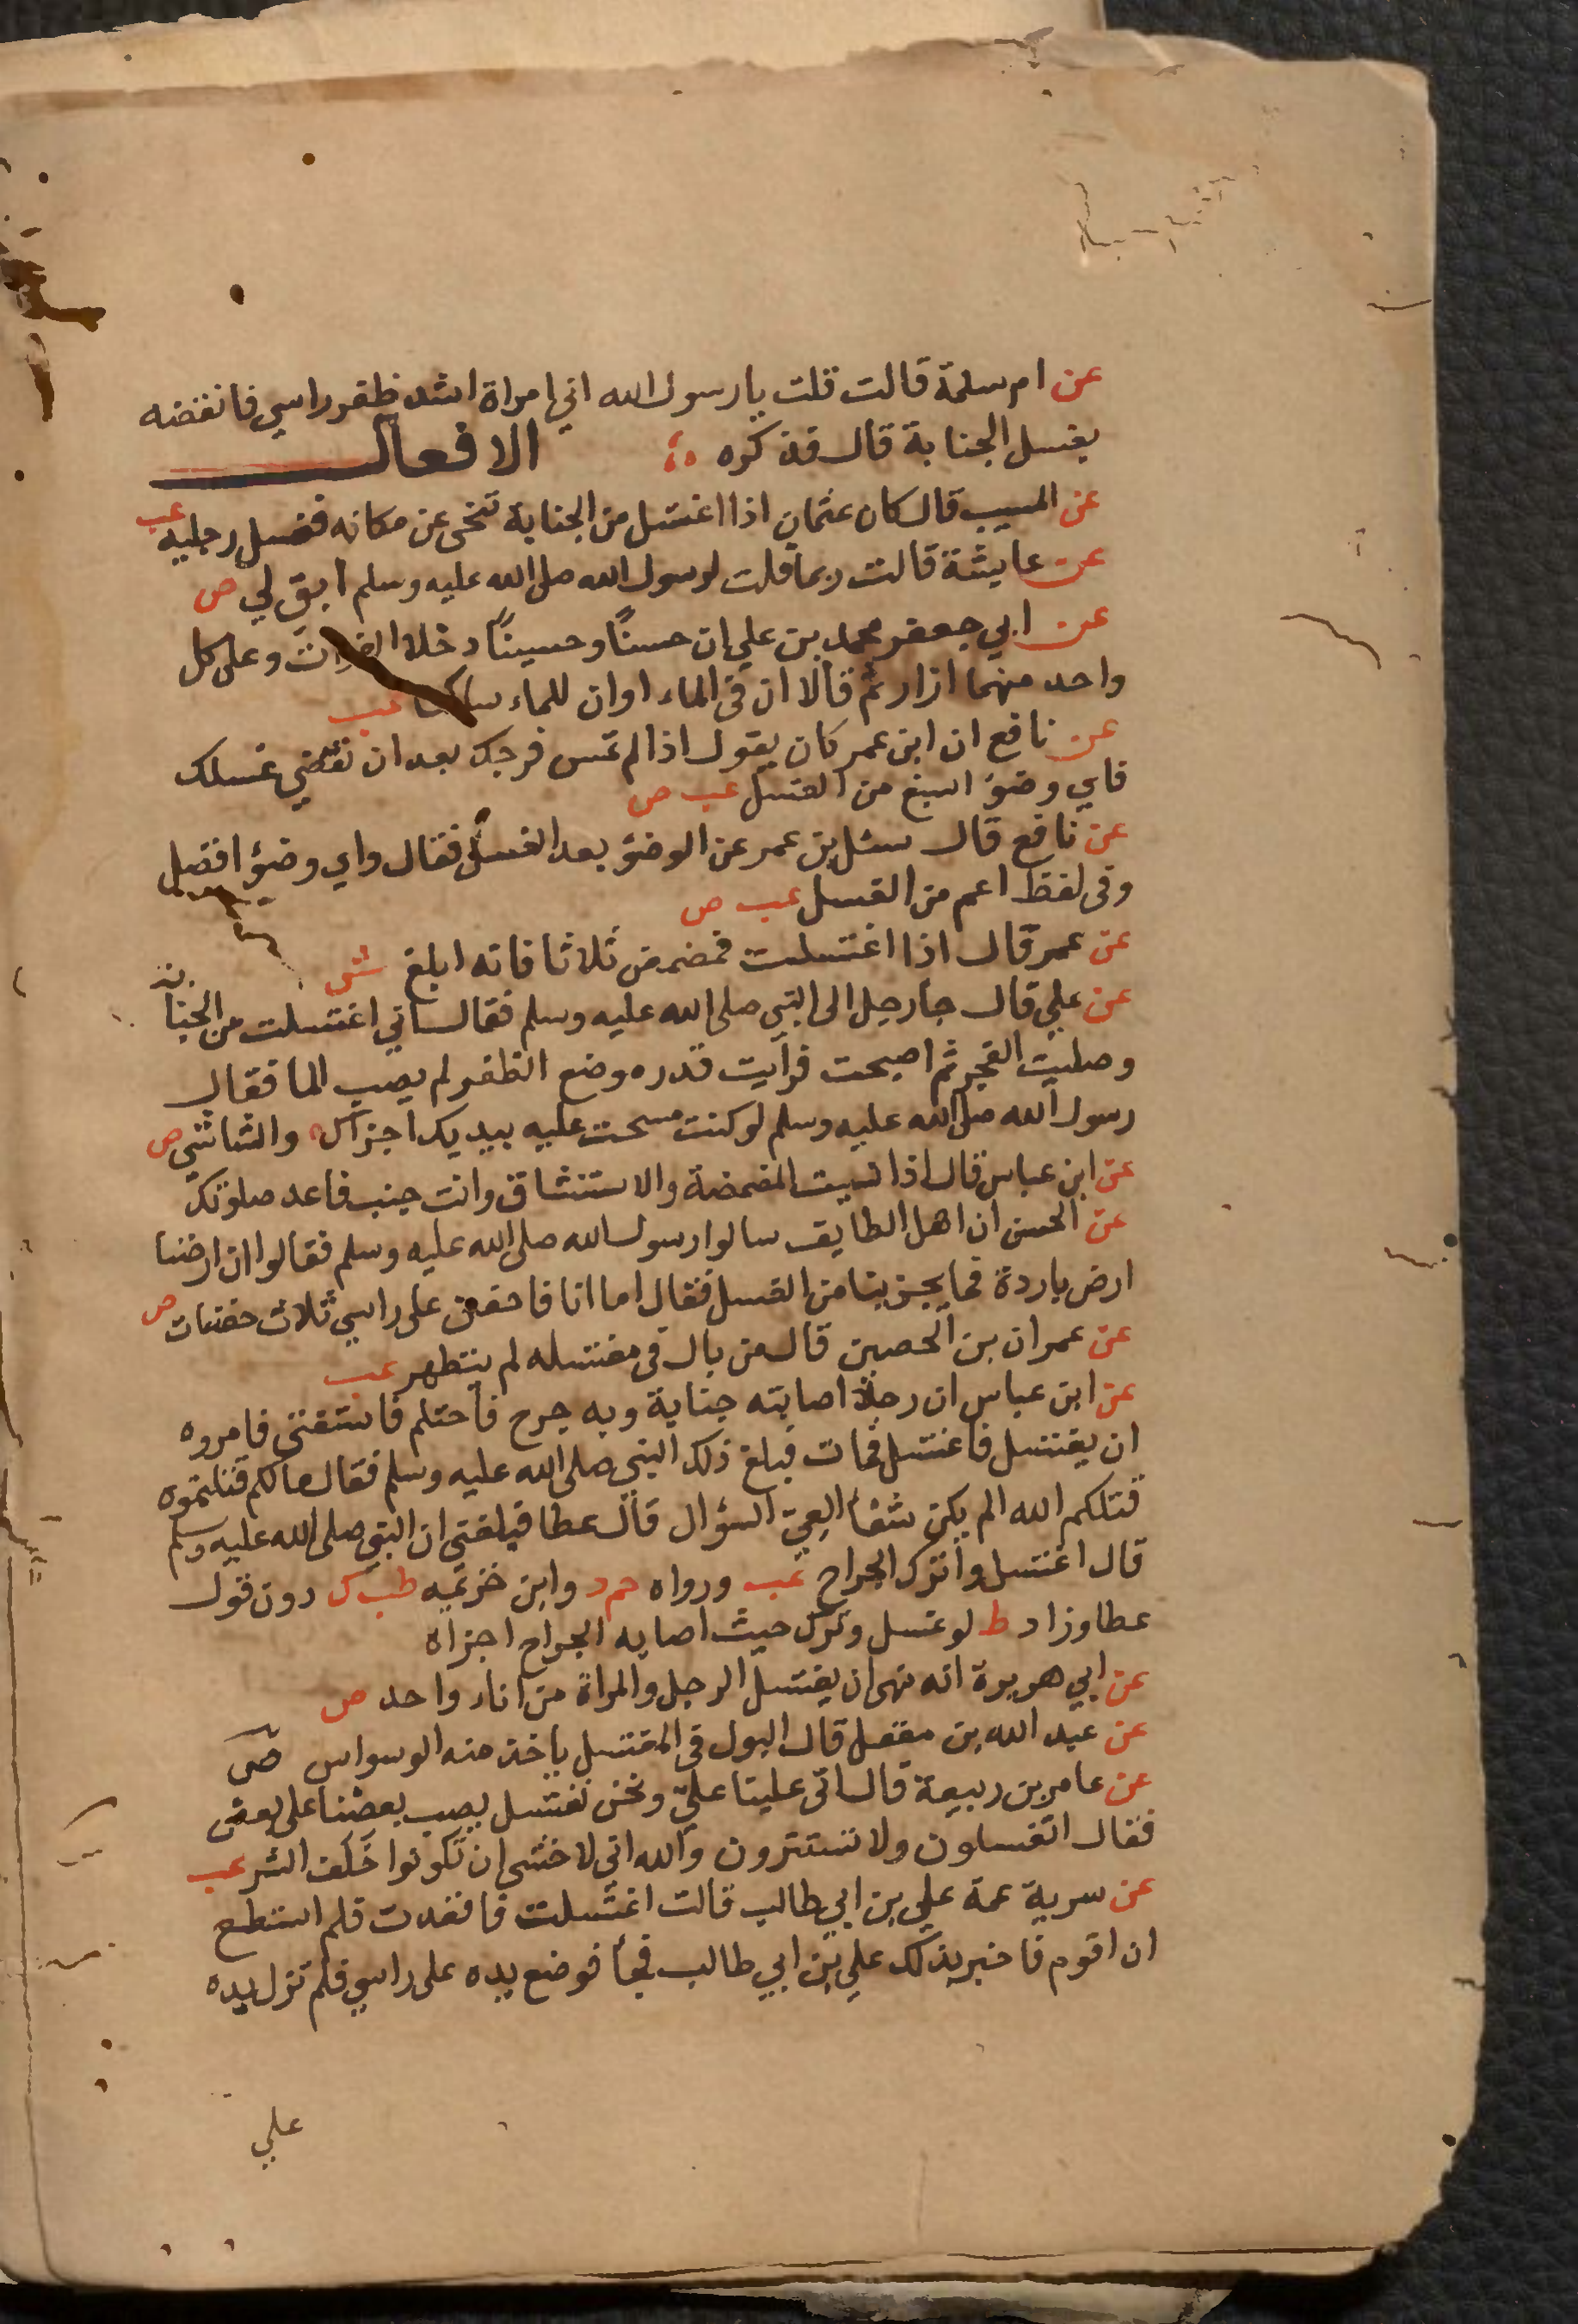 عن ام سلمة قالت قلت يا رسول الله اني امراة اشد ظفر راسي فانقضه
بغسل الجنابة قال فذكره
الافعال
عن المسيب قال كان عثمان اذا اغتسل من الجنابة تنحى عن مكانه فغسل رجليه عب
عن عايشة قالت ربما قلت لرسول الله صلى الله عليه وسلم ابق لي ص
عن ابي جعفر محمد بن علي ان حسنًا وحسينًا دخلا الفرات وعلى كل
واحد منهما ازار ثم قالا ان فى الماء اوان للماء ساكنا عب
عن نافع ان ابن عمر كان يقول اذا لم تمس فرجك بعد ان تقضي غسلك
فاي وضوء اسبغ من الغسل عب ص
عن نافع قال سئل بن عمر عن الوضؤ بعد الغسل فقال واي وضؤ افضل
وفى لفظ اعم من الغسل عب ص
عن عمر قال اذا اغتسلت فمضمض ثلاثا فانه ابلغ ش
عن علي قال جا رجل الى النبي صلى الله عليه وسلم فقال اني اغتسلت من الجنابة
وصليت الفجر ثم اصبحت فرأيت قدر موضع الظفر لم يصب الما فقال
رسول الله صلى الله عليه وسلم لو كنت مسحت عليه بيدك اجزاك ه والشاشي ص
عن ابن عباس قال اذا نسيت المضمضة والاستنشاق وانت جنب فاعد صلوتك
عن الحسن ان اهل الطايف سالوا رسول الله صلى الله عليه وسلم فقالوا ان ارضنا
ارض باردة فما يجزينا من الغسل فقال اما انا فاحفن على راسي ثلاث حفنات ص
عن عمران بن الحصين قال من بال فى مغتسله لم يتطهر عب
عن ابن عباس ان رجلا اصابته جنابة وبه جرح فاحتلم فاستفتى فامروه
ان يغتسل فاغتسل فمات فبلغ ذلك النبي صلى الله عليه وسلم فقال ما لكم قتلتموه
قتلكم الله الم يكن شفأ العيّ السؤال قال عطا فبلغنى ان النبي صلى الله عليه وسلم
قال اغتسل واترك الجراح عب ورواه حم د وابن خزيمه طب ك دون قول
عطا وزاد ط لو غسل وترك حيث اصابه الجراح اجزاه
عن ابي هريرة انه نهى ان يغتسل الرجل والمراة من اناء واحد ص
عن عبد الله بن مغفل قال البول فى المغتسل ياخذ منه الوسواس ص
عن عامر بن ربيعة قال اتى علينا عليّ ونحن نغتسل يصب بعضنا على بعض
فقال اتغسلون ولا تستترون والله اني لاخشى ان تكونوا خلف الشر عب
عن سرية عمة علي بن ابي طالب قالت اغتسلت فاقعدت فلم استطع
ان اقوم فاخبر بذلك علي بن ابي طالب فجأ فوضع يده على راسي فلم تزل يده
علي